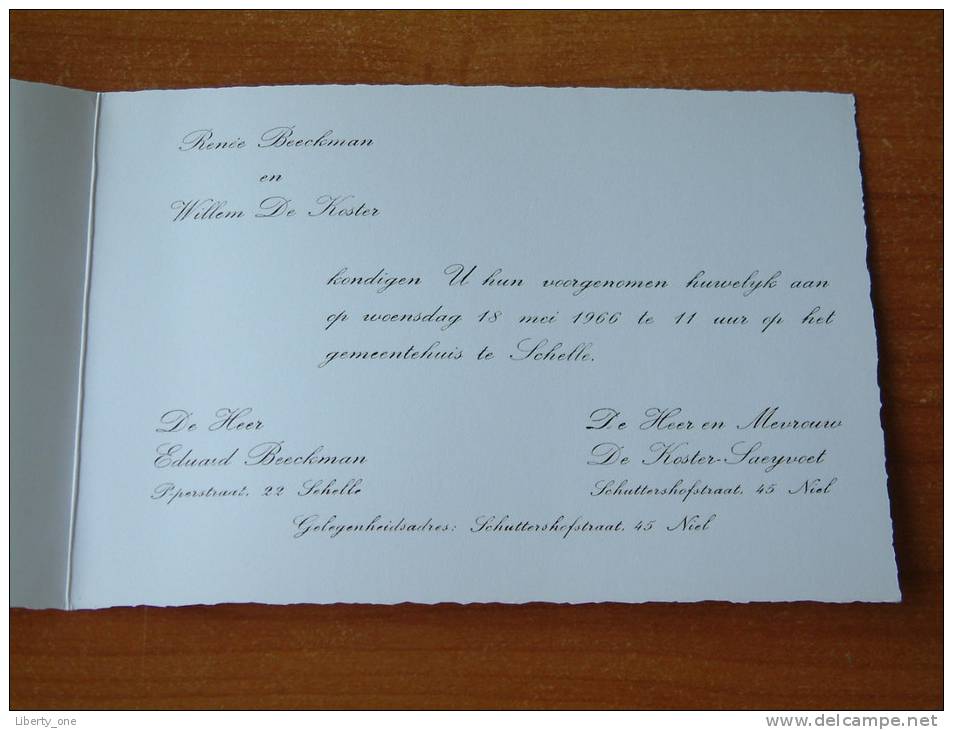 Renée Beeckman
en
Willem De Koster
kondigen U hun voorgenomen huwelyk aan
op woensdag 18 mei 1966 te 11 uur op het
gemeentehuis te Schelle.
De Heer
Eduard Beeckman
22 Schelle
De Heer en Mevrouw
De Koster-Saeyvoet
Schuttershofstraat, 45 Niel
Gelegenheidsadres: Schuttershofstraat, 45 Niel
Liberty_one
www.delcampe.net